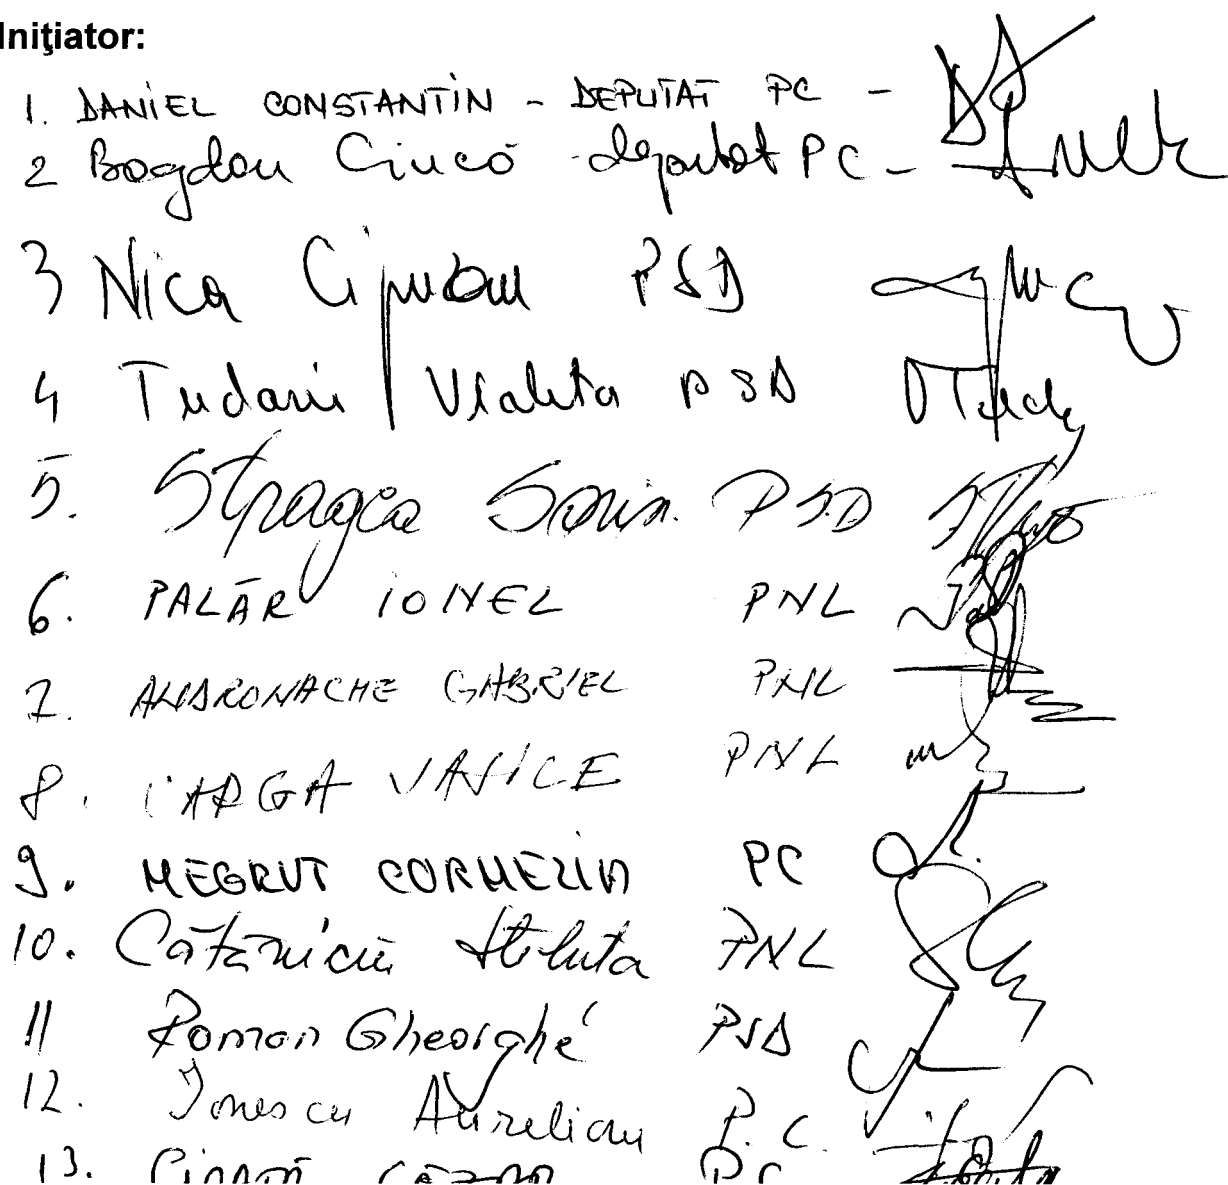 Iniţiator:
1. DANIEL CONSTANTIN - DEPUTAT PC -
2 Bogdan Ciucă - deputat PC -
3 Nica Ciprian PSD
4 Tudorie Violeta PSD
5. Stragea Sorin PSD
6. PALĂR IONEL PNL
7. ANDRONACHE GABRIEL PNL
8. VARGA VASILE PNL
9. NEGRUT PC
10. Cătăniciu Steluta PNL
11 Roman Gheorghe PSD
12. Ionescu Aurelian P.C.
13. PC